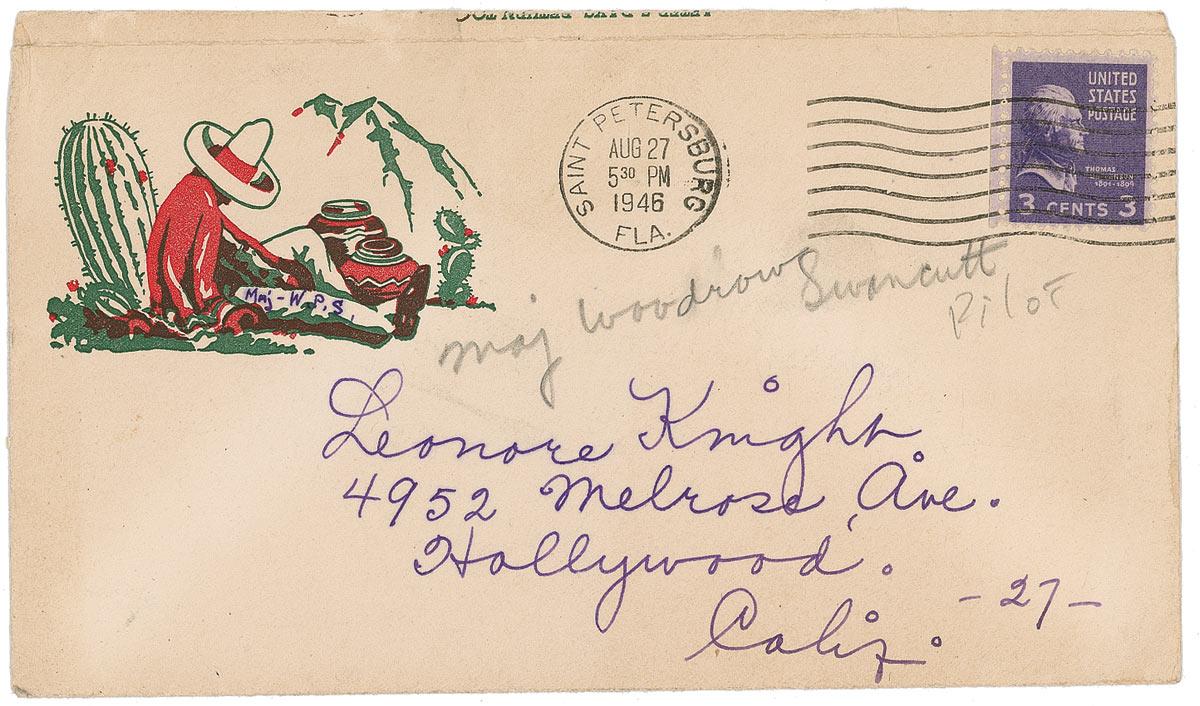 UNITED
STATES
POSTAGE
THOMAS
JEFFERSON
1801-1809
3 CENTS 3
SAINT PETERSBURG
AUG 27
5 30 PM
1946
FLA.
Maj - W. P. S.
Maj Woodrow Swancutt
Pilot
Leonore Knight
4952 Melrose Ave.
Hollywood.
- 27 -
Calif.